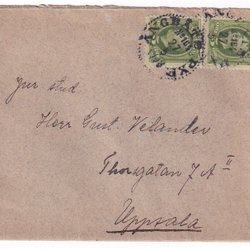 ÅNGBÅTS PXE
Jur stud
Herr Gust. Velander
Thorgatan 7 A II
Uppsala